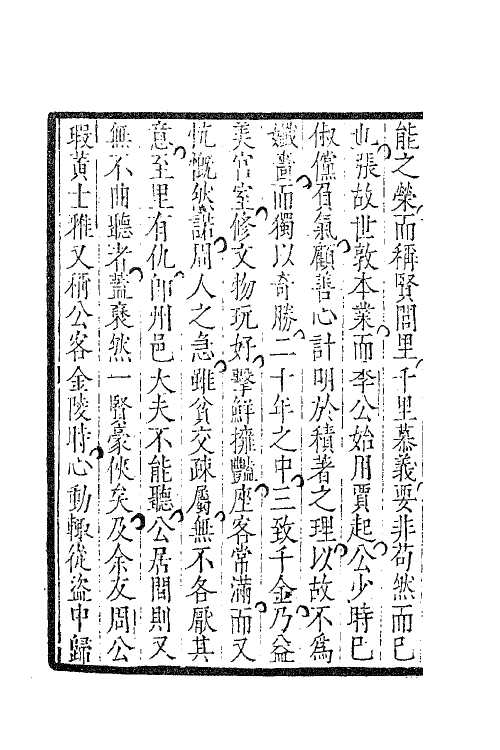 能之榮而稱賢閭里千里慕義要非苟然而已
也張故世敦本業而李公始用賈起公少時已
俶儻負氣顧善心計明於積著之理以故不爲
孅嗇而獨以奇勝二十年之中三致千金乃益
美宮室修文物玩好擊鮮擁豔座客常滿而又
忼慨然諾周人之急雖貧交疎屬無不各厭其
意至里有仇卽州邑大夫不能聽公居間則又
無不曲聽者蓋裒然一賢豪俠矣及余友周公
瑕黃士雅又稱公客金陵時心動輒從盜中歸